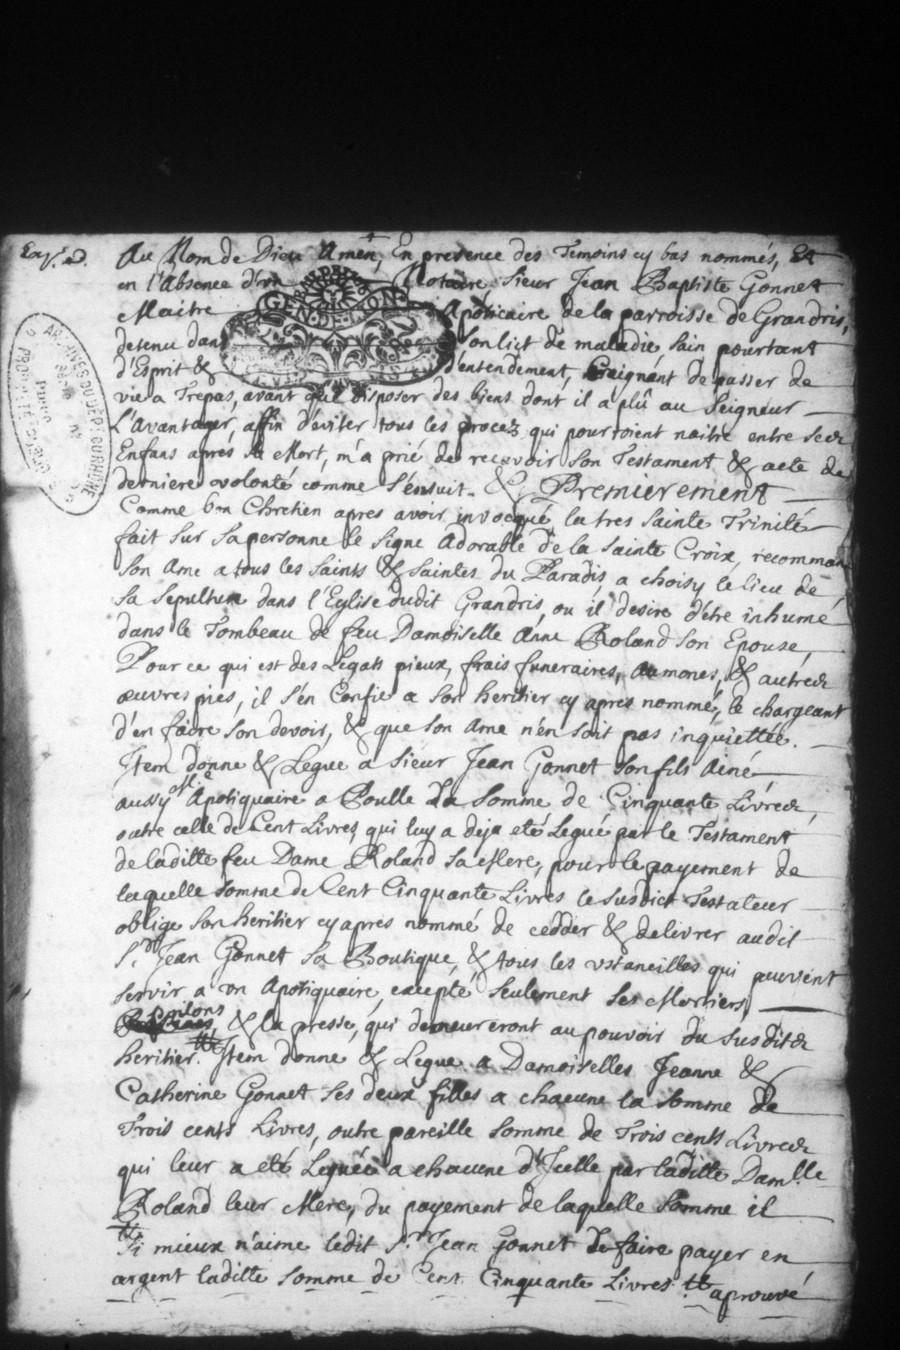 Exp.é d.
Au Nom de Dieu Amen, En presence des Temoins cy bas nommés, Et
en l'Absence d'vn Notaire Sieur Jean Baptiste Gonnet
Maitre Apoticaire de la parroisse de Grandris,
detenu dans son lict de maladie, sain pourtant
d'Esprit & d'entendement, Craignant de passer de
vie a Trepas, avant que disposer des biens dont il a plû au Seigneur
L'avantager, affin d'éviter tous les procez qui pourroient naitre entre ses
Enfans aprés sa Mort, m'a prié de recevoir son Testament & acte de
derniere volonté comme s'ensuit. & Premierement
Comme bon Chretien apres avoir invocqué la tres sainte Trinité
fait sur sa personne le signe adorable de la sainte Croix, recommandé
son Ame a tous les saints & saintes du Paradis, a choisy le lieu de
sa sepulture dans l'Eglise dudit Grandris, ou il desire d'être inhumé
dans le Tombeau de feu Damoiselle Anne Roland son Epouse,
Pour ce qui est des Legats pieux, frais funeraires, aumones, & autres
œuvres pies, il s'en confie a son heritier cy apres nommé, le chargeant
d'en faire son devoir, & que son ame n'en soit pas inquiettée.
Item donne & Legue a sieur Jean Gonnet son fils Ainé
aussy Apotiquaire a Poulle La somme de Cinquante Livres,
outre celle de Cent Livres qui luy a deja eté Legué par le Testament
de laditte feu Dame Roland sa Mere, pour le payement de
laquelle somme de Cent Cinquante Livres le susdict Testateur
oblige son heritier cy apres nommé de cedder & delivrer audit
S.r Jean Gonnet sa Boutique, & tous les vstancilles qui peuvent
servir a vn Apotiquaire, excepté seulement ses Mortiers,
pilons & la presse, qui demeureront au pouvoir du susdit
heritier. Item donne & Legue a Damoiselles Jeanne &
Catherine Gonnet ses deux filles a chacune la somme de
Trois cents Livres, outre pareille somme de Trois cents Livres
qui leur a eté Leguée a chacune d'Icelle par laditte Dam.lle
Roland leur Mere, du payement de laquelle somme il
si mieux n'aime ledit S.r Jean Gonnet se faire payer en
argent laditte somme de Cent Cinquante Livres aprouvé
GEN. DE LYON